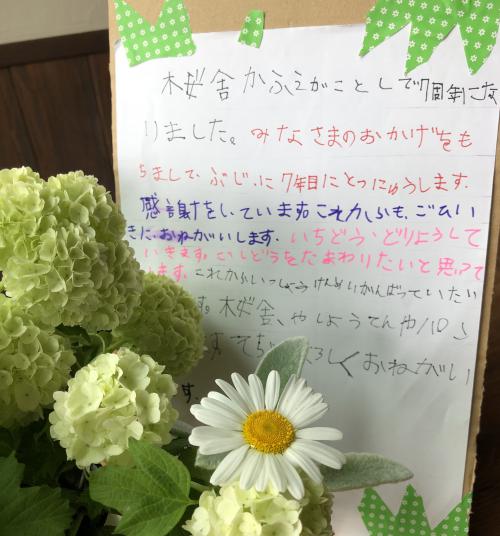 桜舎かふぇがことしで7周年にな
りました。みなさまのおかげをも
ちまして、ぶじに7年目にとつにゅうします。
感謝をしています。これからも、ごひい
きに、おねがいします。いちどう、どりょくして
いきます。ごしどうをたまわりたいと思って
します。これからいっしょうけんめいがんばっていたい
す。桜舎、やしょうてんや
よろしくおねがい
す。